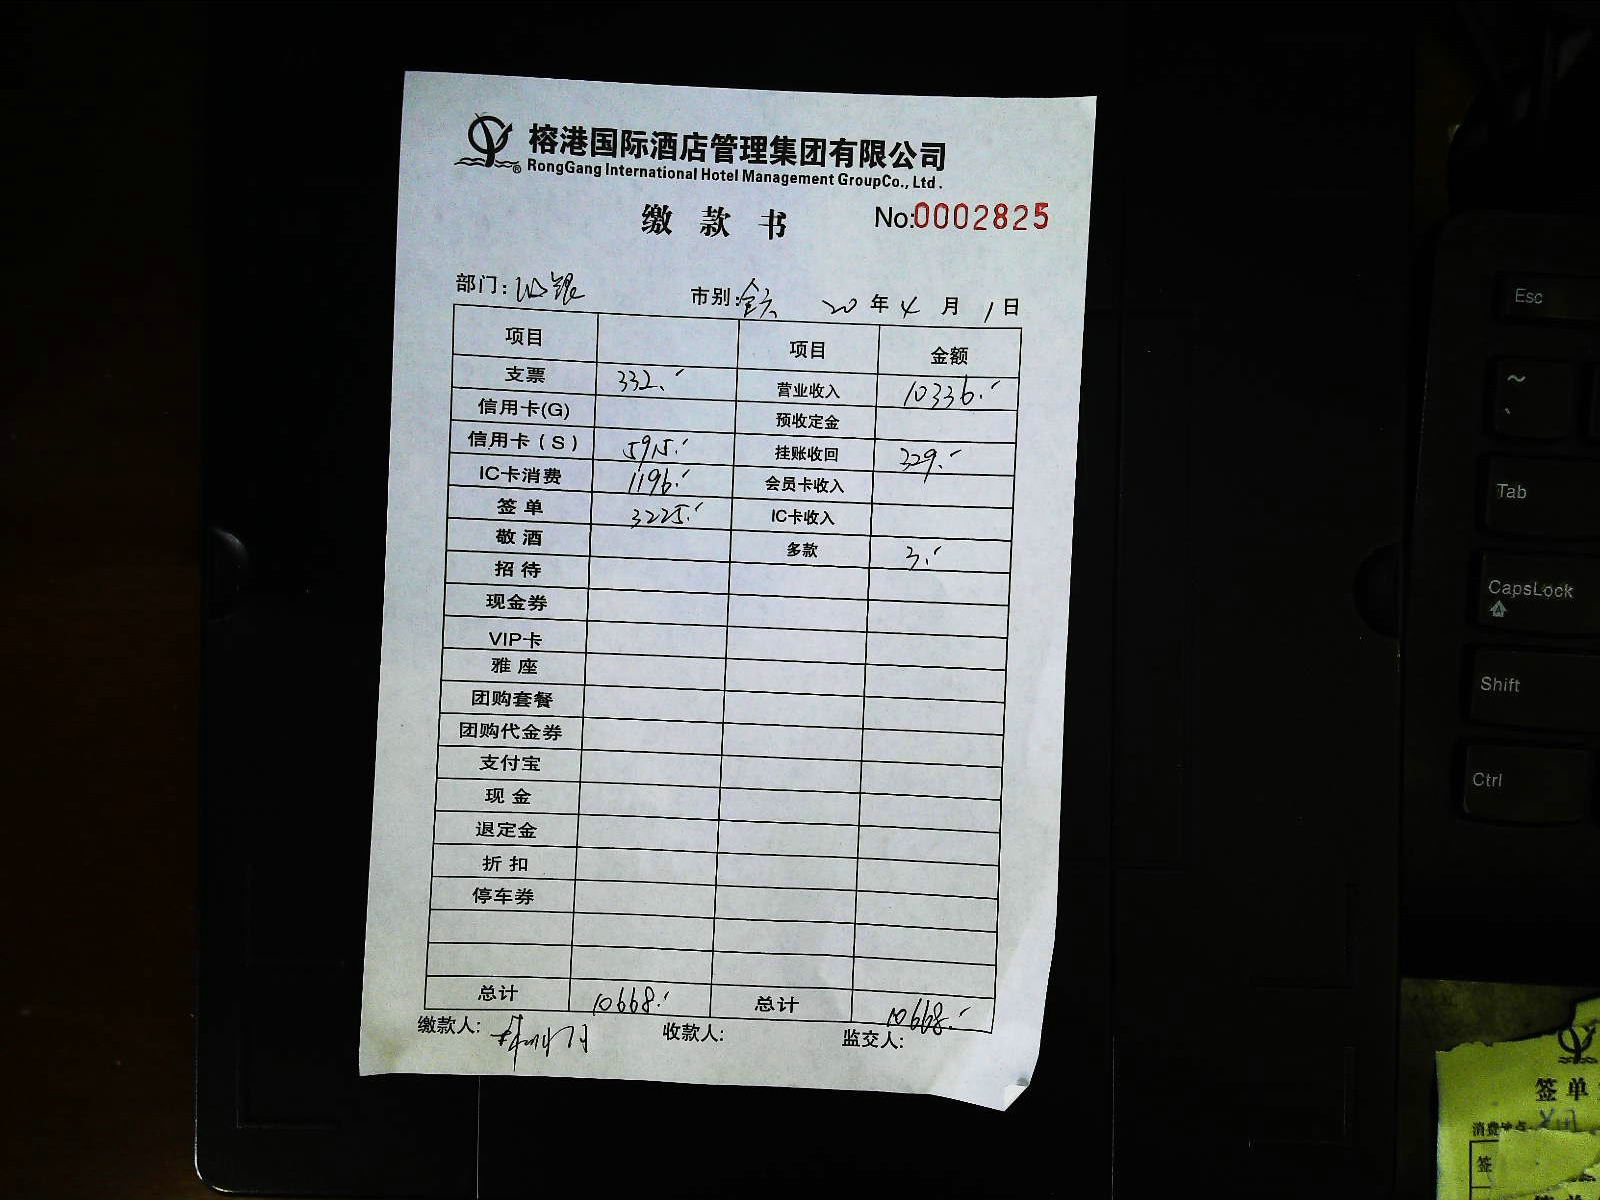 榕港国际酒店管理集团有限公司
RongGang International Hotel Management GroupCo., Ltd.
缴 款 书 No:0002825
部门: 市别: 20 年 4 月 1 日
项目 项目 金额
支票 332.- 营业收入 10336.-
信用卡(G) 预收定金
信用卡(S) 5915.- 挂账收回 329.-
IC卡消费 1196.- 会员卡收入
签 单 3225.- IC卡收入
敬 酒 多款 3.-
招 待
现金券
VIP卡
雅 座
团购套餐
团购代金券
支付宝
现 金
退定金
折 扣
停车券
总计 10668.- 总计 10668.-
缴款人: 收款人: 监交人:
Esc
~
Tab
CapsLock
Shift
Ctrl
签 单
消费地点:
签